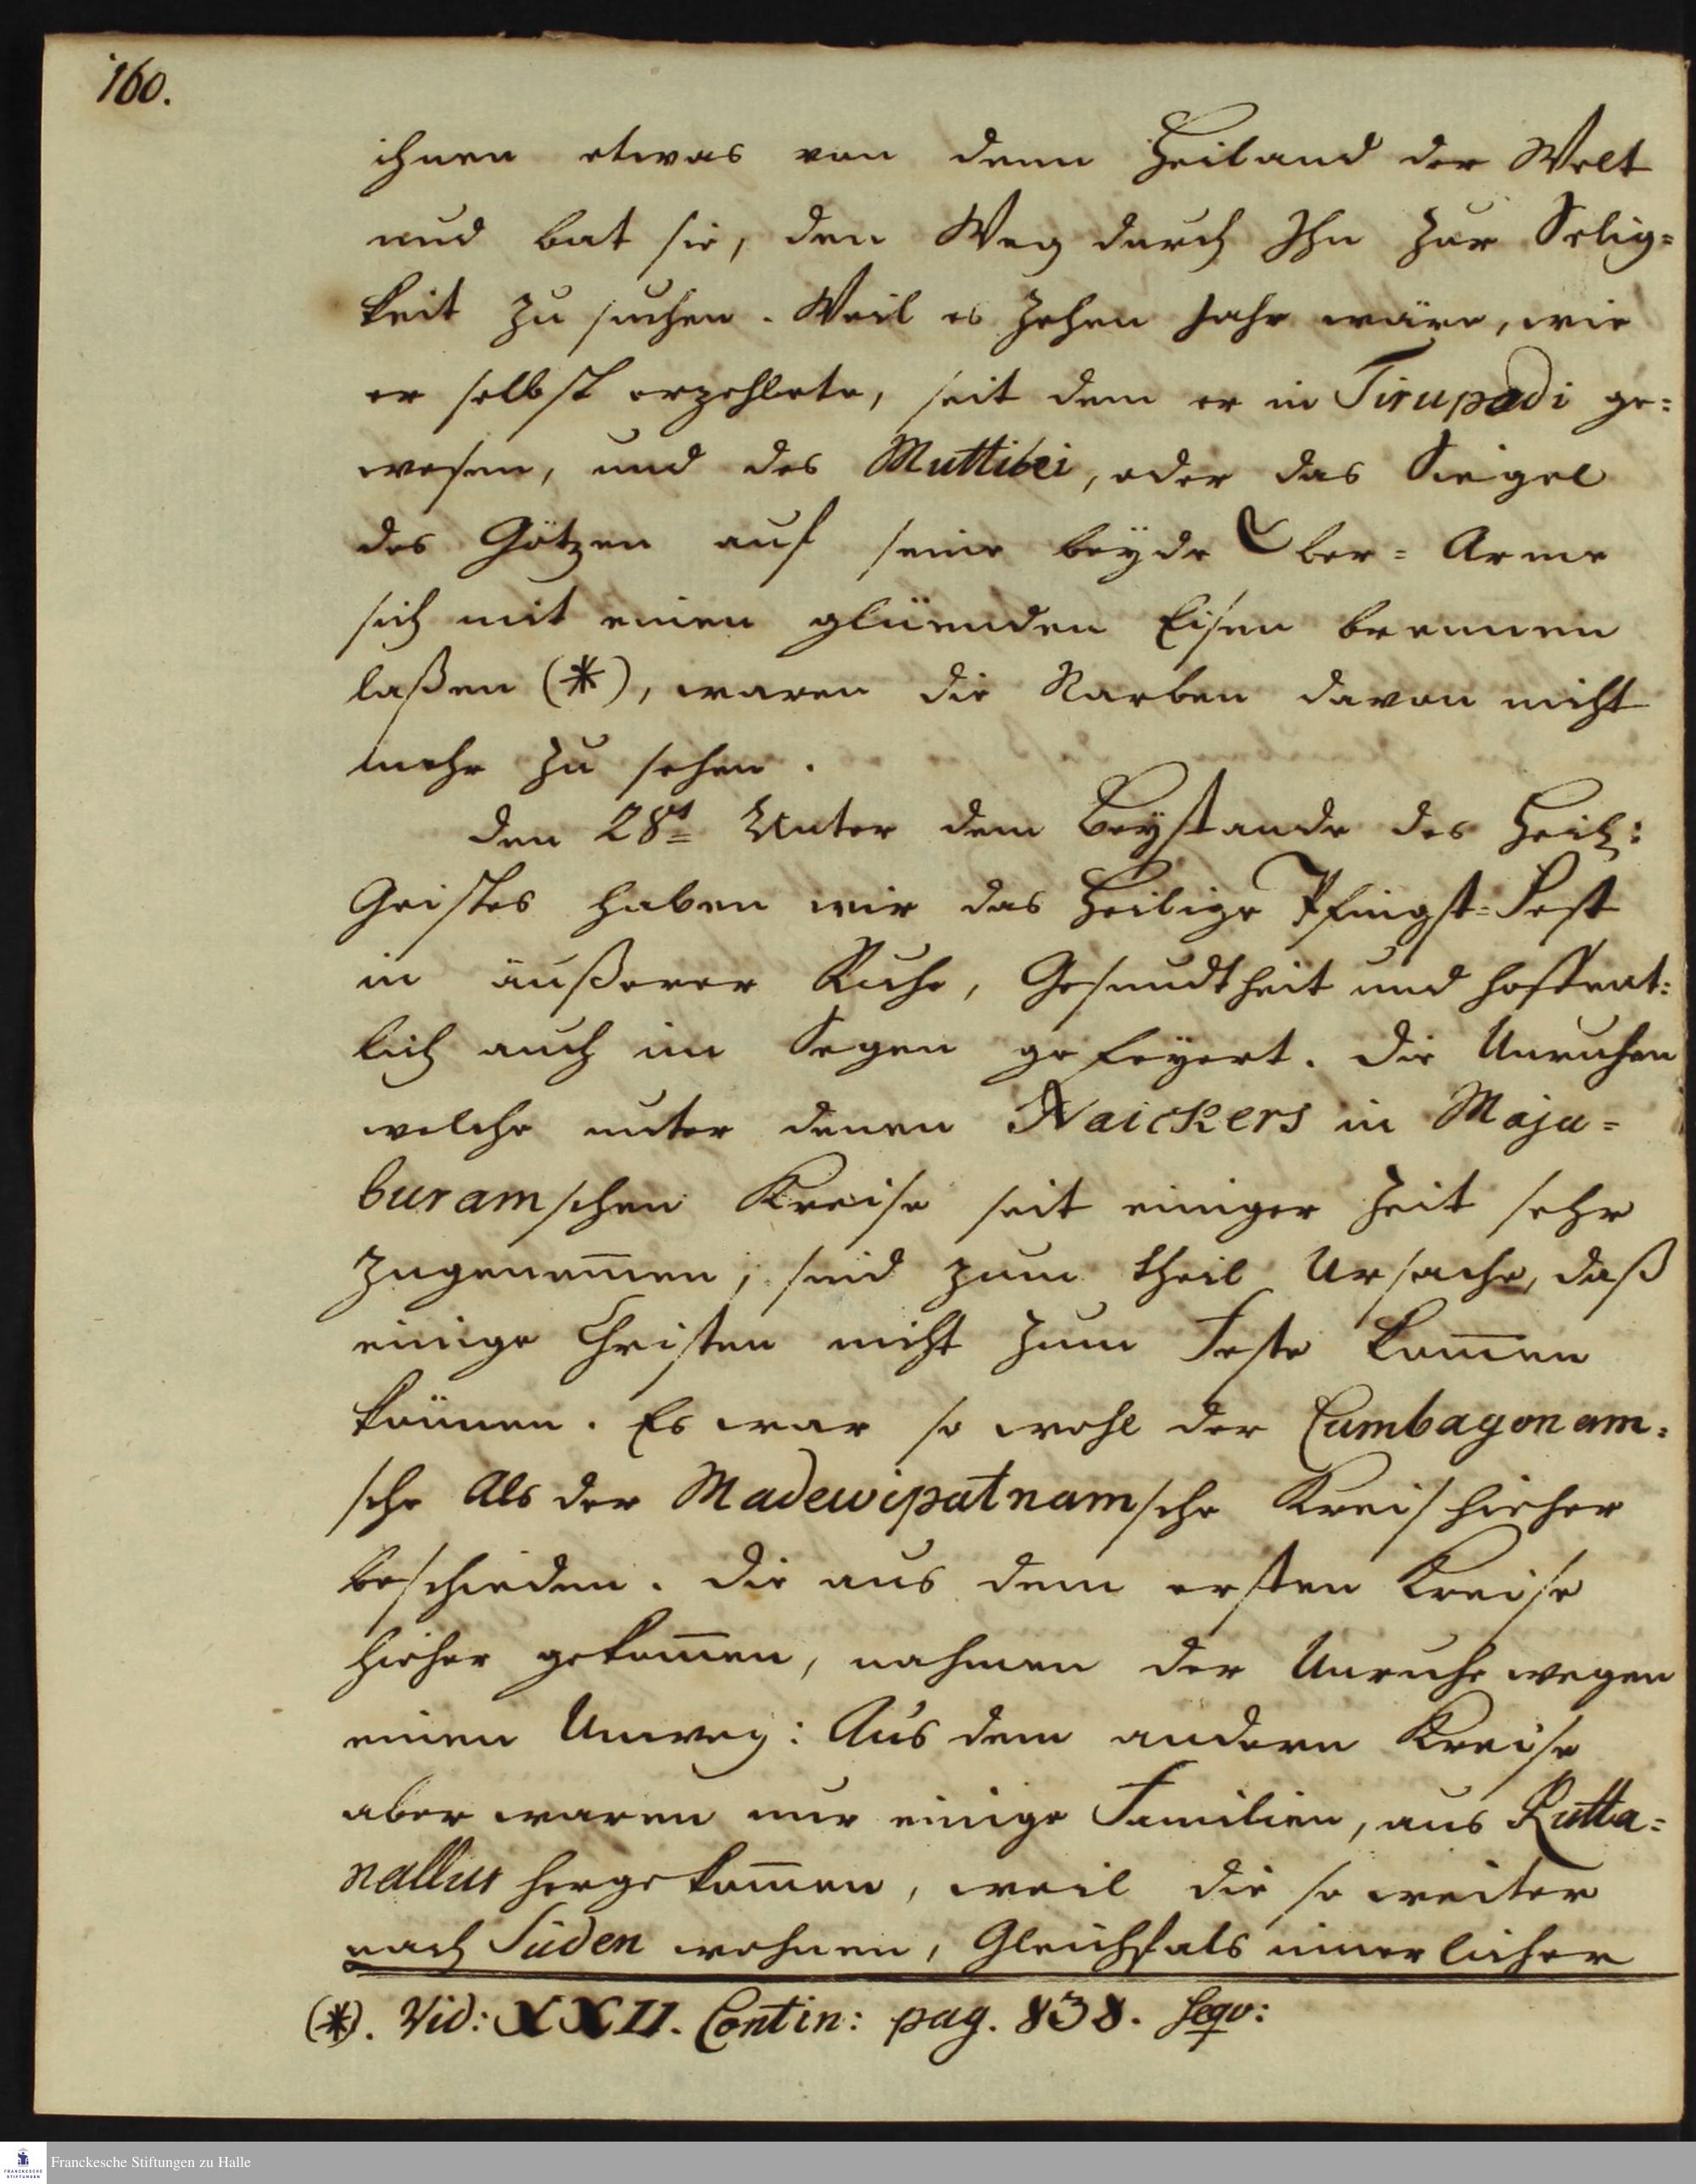 160.
ihnen etwas von dem Heiland der Welt
und bat sie, den Weg durch Ihn zur Selig=
keit zu suchen. Weil es zehen Jahr wäre, wie
er selbst erzehlete, seit dem er in Tirupadi ge=
wesen, und des Muttibei, oder das Siegel
des Götzen auf seine beyde Ober=Arme
sich mit einen glüenden Eisen brennen
laßen (*), waren die Narben davon nicht
mehr zu sehen.
Den 28t Unter dem Beystande des Heil:
Geistes haben wir das Heilige Pfingst=Fest
in äußerer Ruhe, Gesundtheit und hoffent=
lich auch im Segen gefeyert. Die Unruhen
welche unter denen Naickers in Maja=
buramschen Kreise seit einiger Zeit sehr
zugenom̄en, sind zum theil Ursache, daß
einige Christen nicht zum Feste kom̄en
können. Es war so wohl der Cumbagonam=
sche als der Madewipatnamsche Kreis hieher
beschieden. Die aus dem ersten Kreise
hieher gekom̄en, nahmen der Unruhe wegen
einen Umweg: Aus dem andern Kreise
aber waren nur einige Familien, aus Rutta=
nallur hergekom̄en, weil die so weiter
nach Süden wohnen, Gleichfals innerlicher
(*). Vid: XXII. Contin: pag. 838. seqv:
Franckesche Stiftungen zu Halle